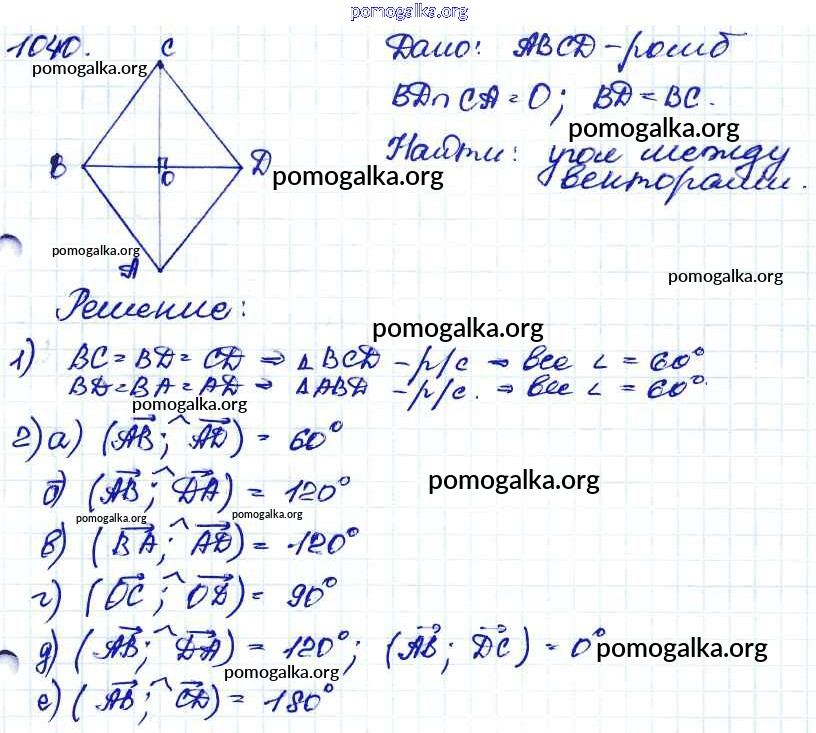 pomogalka.org
1040.
pomogalka.org
C
B
O
D
A
pomogalka.org
pomogalka.org
Дано: ABCD - ромб
BD∩CA = O; BD = BC.
pomogalka.org
Найти: угол между
векторами.
pomogalka.org
Решение:
pomogalka.org
1) BC = BD = CD ⇒ △BCD - р/с ⇒ все ∠ = 60°
BD = BA = AD ⇒ △ABD - р/с. ⇒ все ∠ = 60°.
pomogalka.org
2) а) (AB; ^AD) = 60°
б) (AB; ^DA) = 120°
pomogalka.org
pomogalka.org
pomogalka.org
в) (BA; ^AD) = 120°
г) (OC; ^OD) = 90°
д) (AB; ^DA) = 120°; (AB; DC) = 0°
pomogalka.org
pomogalka.org
е) (AB; ^CD) = 180°